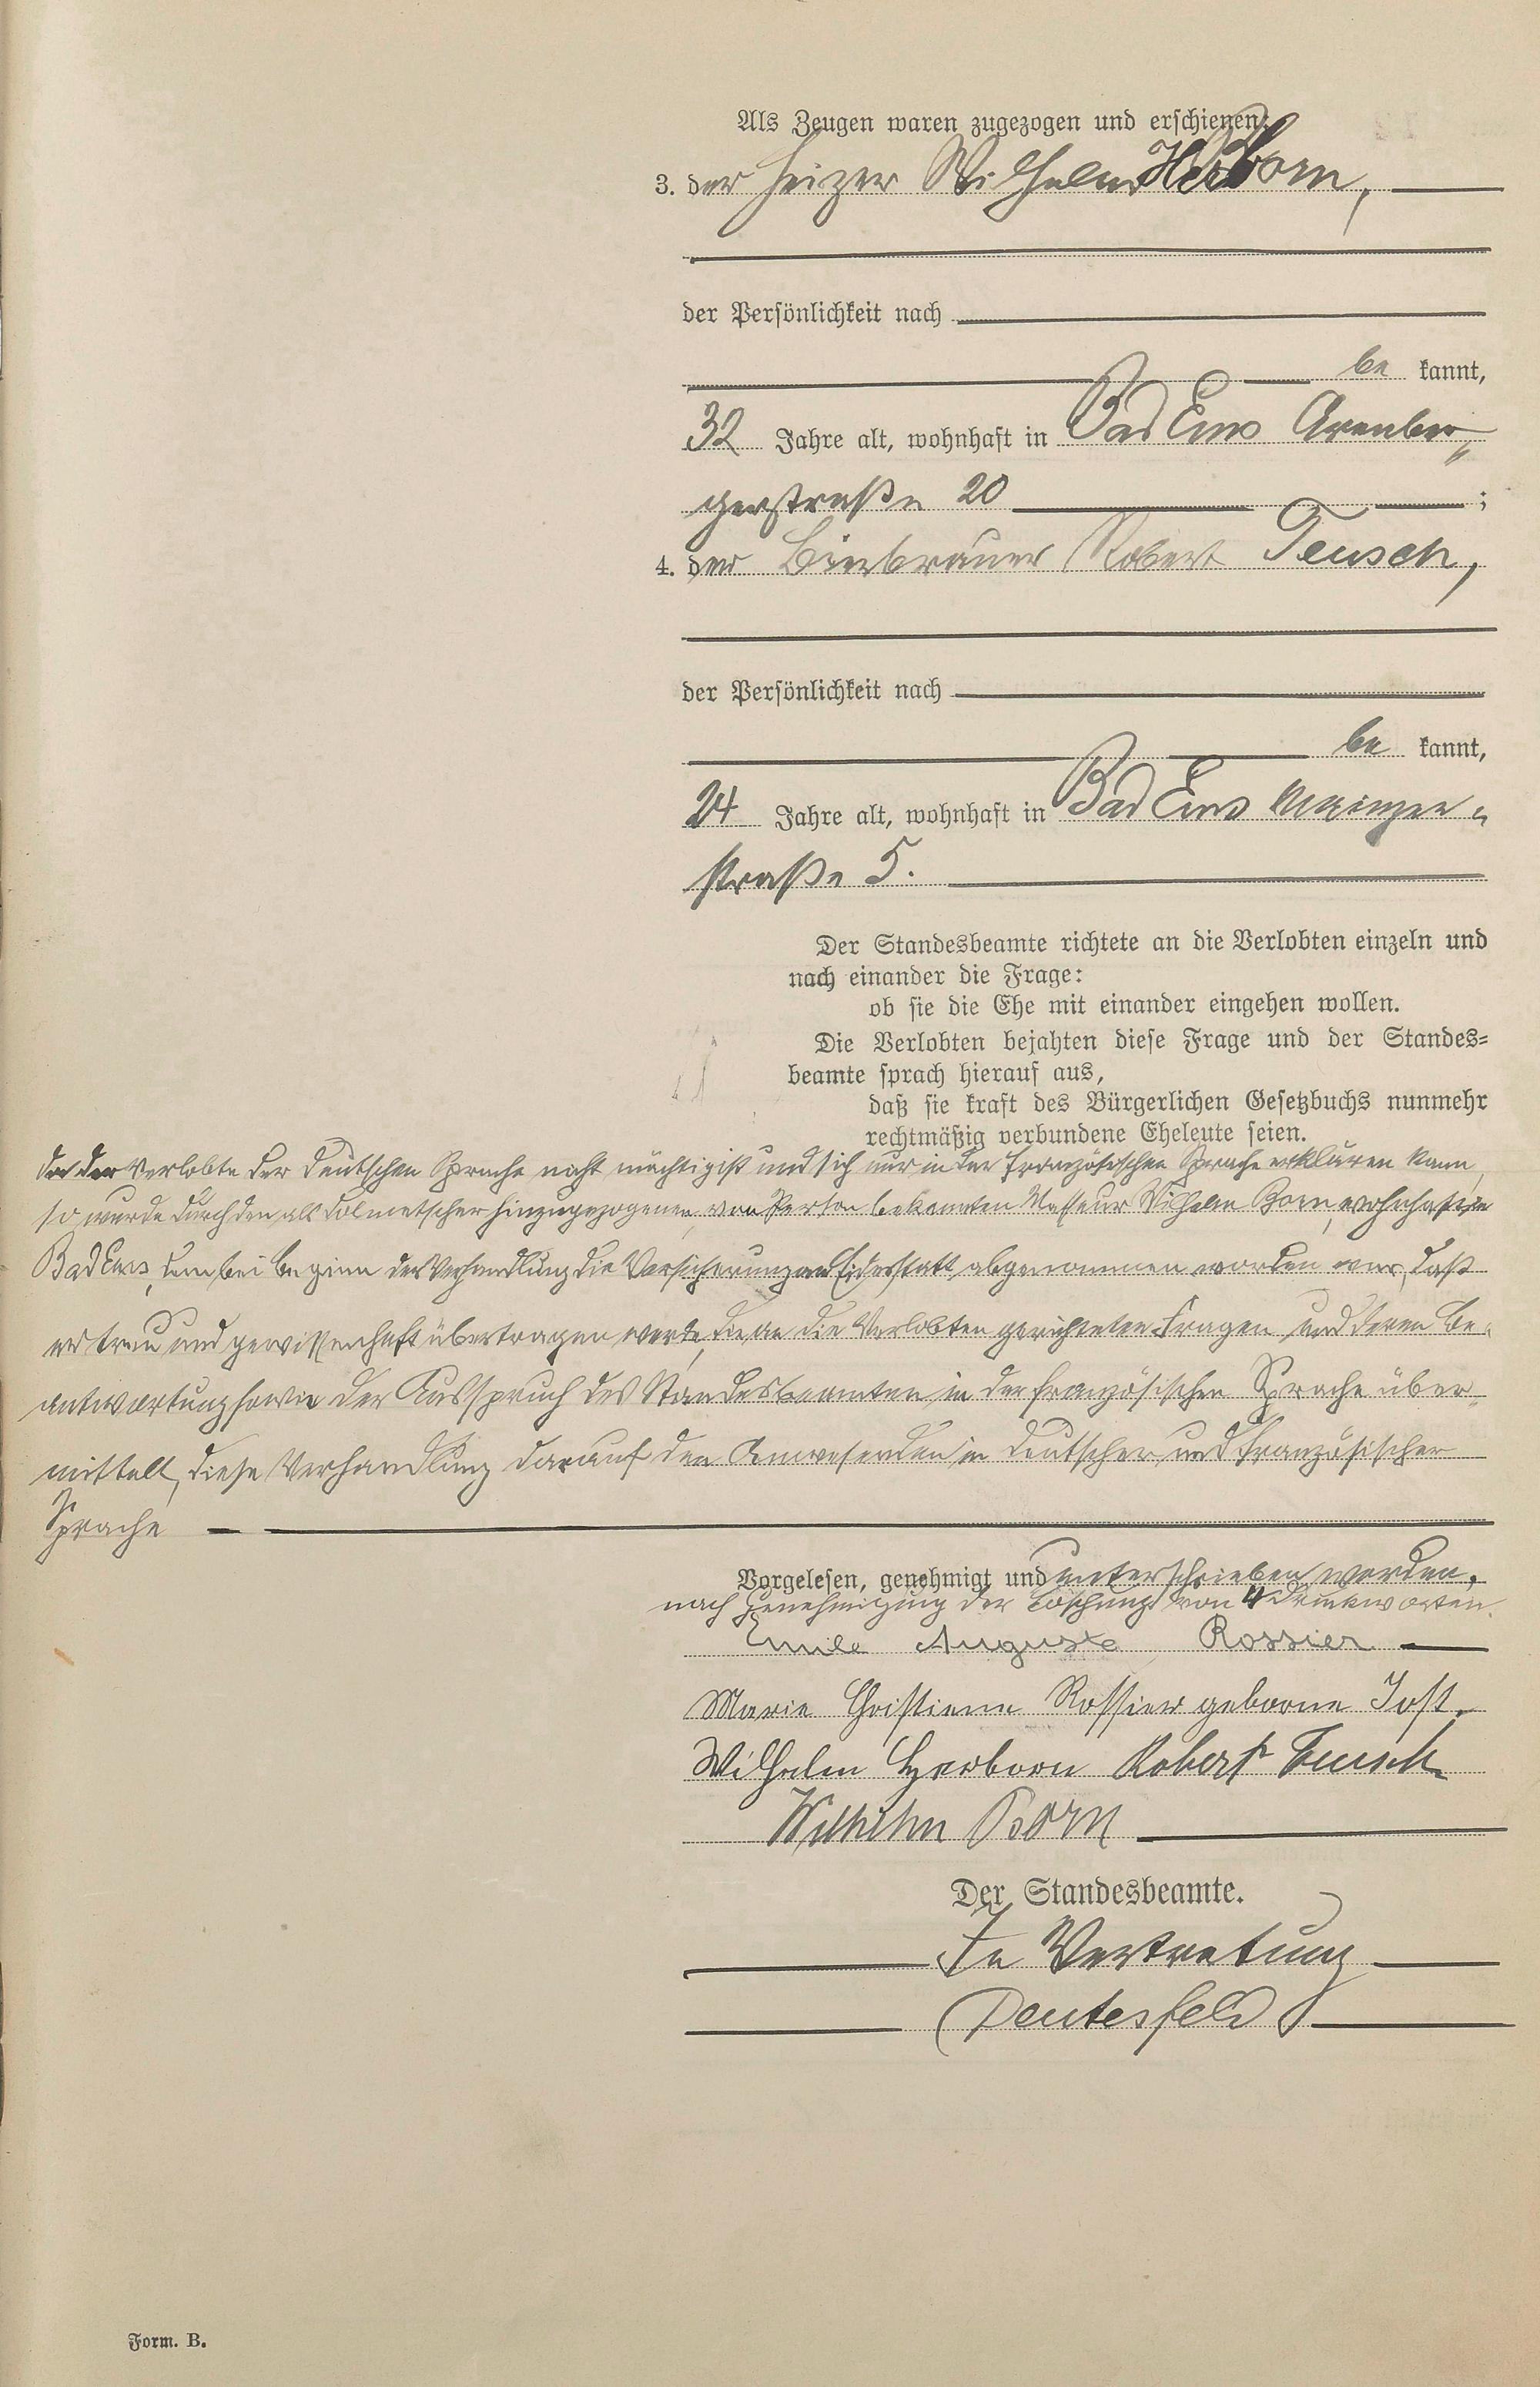 Als Zeugen waren zugezogen und erschienen:
3. der Heizer Wilhelm Herborn,
der Persönlichkeit nach
be kannt,
32 Jahre alt, wohnhaft in Bad Ems Arenber„
gerstraße 20 ;
4. der Bierbrauer Robert Teusch,
der Persönlichkeit nach
be kannt,
24 Jahre alt, wohnhaft in Bad Ems Mainzer„
straße 5.
Der Standesbeamte richtete an die Verlobten einzeln und
nach einander die Frage:
ob sie die Ehe mit einander eingehen wollen.
Die Verlobten bejahten diese Frage und der Standes=
beamte sprach hierauf aus,
daß sie kraft des Bürgerlichen Gesetzbuchs nunmehr
rechtmäßig verbundene Eheleute seien.
Da der Verlobte der deutschen Sprache nicht mächtig ist und sich nur in der französischen Sprache erklären kann,
so wurde durch den als Dolmetscher hinzugezogenen, von Person bekannten Masseur Wilhelm Born, wohnhaft in
Bad Ems, dem bei Beginn der Verhandlung die Versicherung an Eidesstatt abgenommen worden war, daß
er treu und gewissenhaft übertragen werde, die an die Verlobten gerichteten Fragen und deren Be„
antwortung sowie der Ausspruch des Standesbeamten in der französischen Sprache über„
mittelt, diese Verhandlung darauf den Anwesenden in deutscher und französischer
Sprache
Vorgelesen, genehmigt und unterschrieben worden,
nach Genehmigung der Löschung von 4 Druckworten.
Emile Auguste Rossier
Marie Christiane Rossier geborne Jost.
Wilhelm Herborn Robert Teusch
Wilhelm Born
Der Standesbeamte.
In Vertretung
Deutesfeld
Form. B.